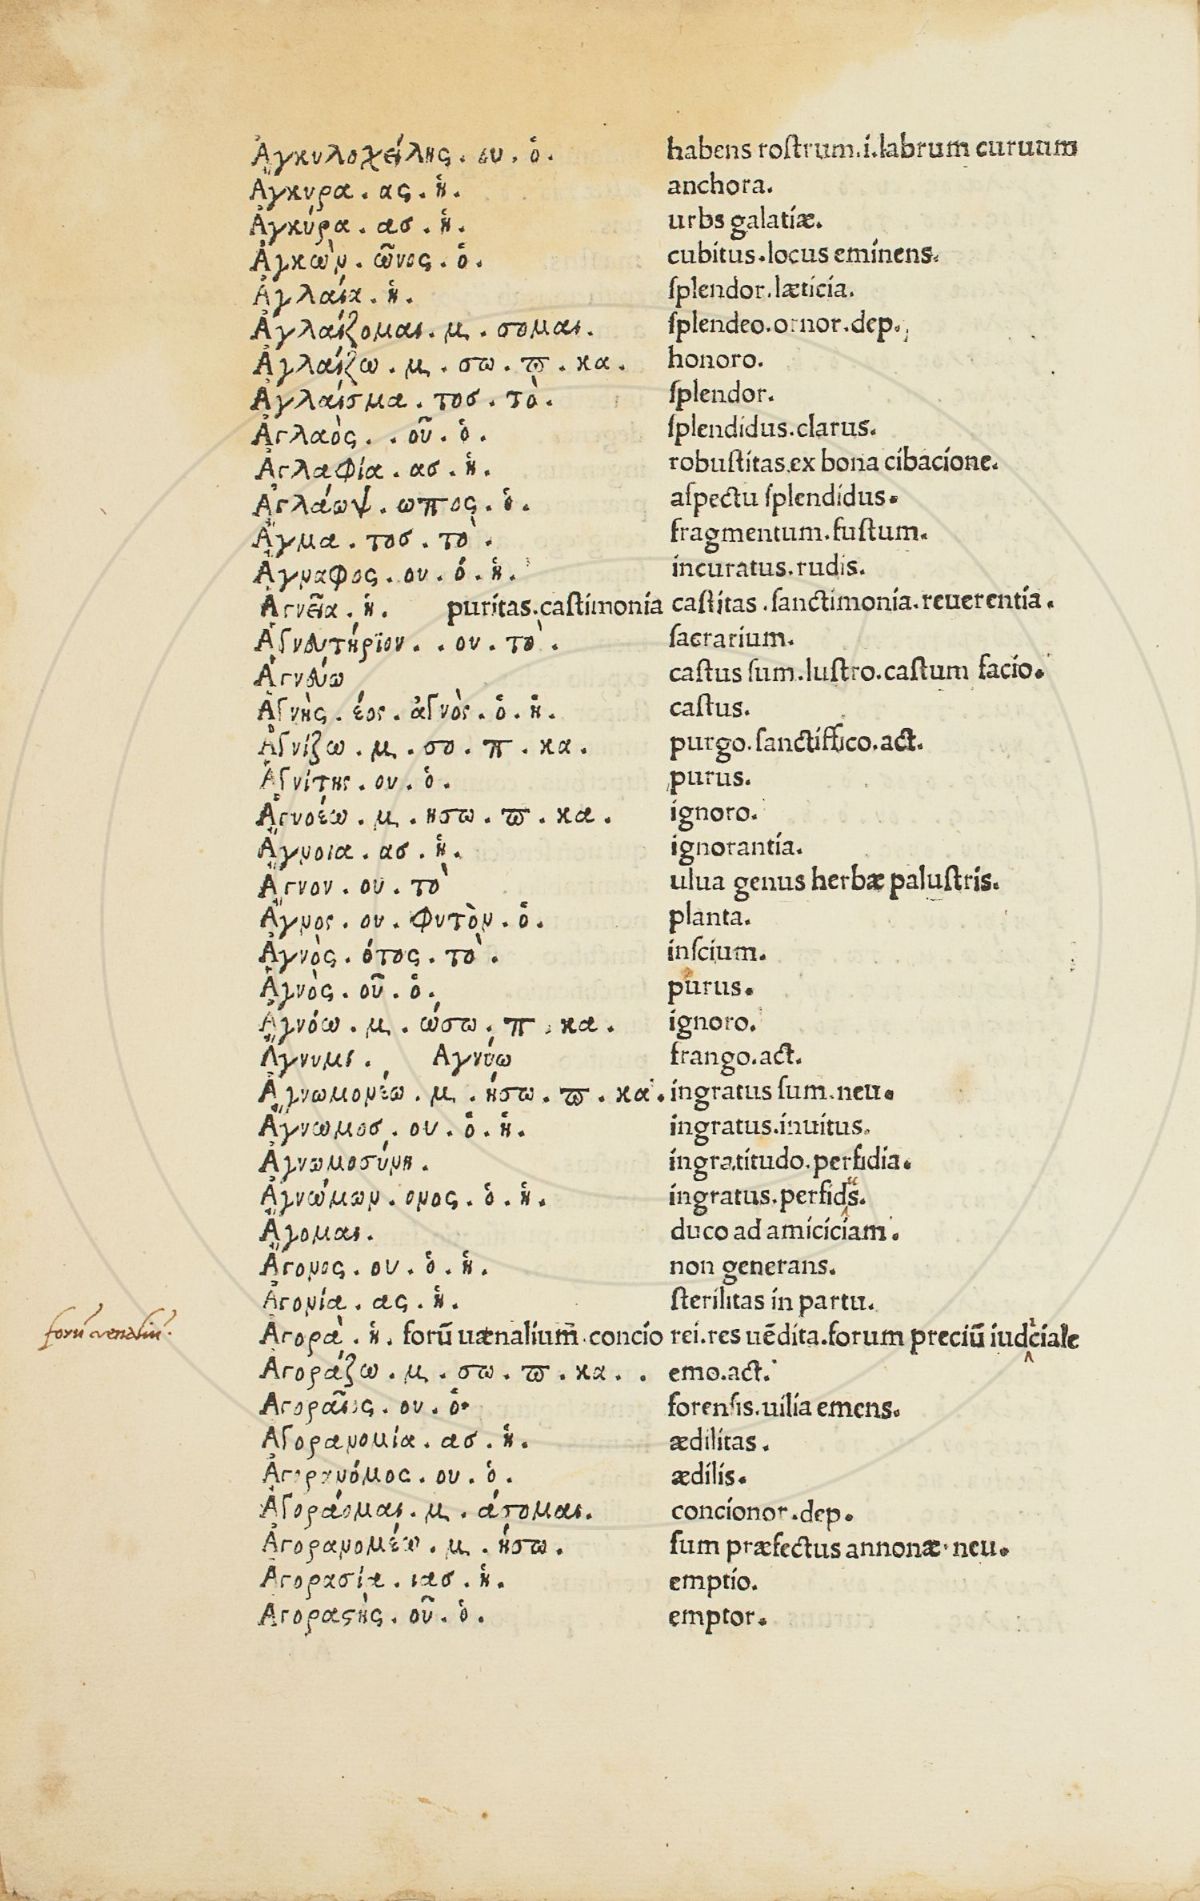 Ἀγκυλοχείλης . ου . ὁ. habens roſtrum.i.labrum curuum
Ἄγκυρα . ας . ἡ. anchora.
Ἀγκύρα . ασ . ἡ. urbs galatiæ.
Ἀγκὼν . ῶνος . ὁ. cubitus.locus eminens.
Ἀγλαΐα . ἡ. ſplendor.læticia.
Ἀγλαΐζομαι. μ . σομαι. ſplendeo.ornor.dep.
Ἀγλαΐζω . μ . σω . ϖ . κα. honoro.
Ἀγλαΐσμα . τοσ . τὸ. ſplendor.
Ἀγλαὸς . . οῦ . ὁ. ſplendidus.clarus.
Ἀγλαφία . ασ . ἡ. robuſtitas.ex bona cibacione.
Ἀγλάωψ . ωπος . ὁ. aſpectu ſplendidus.
Ἄγμα . τοσ . τὸ. fragmentum.fuſtum.
Ἄγναφος . ου . ὁ . ἡ. incuratus.rudis.
Ἁγνεῖα . ἡ. puritas.caſtimonia caſtitas.ſanctimonia.reuerentia.
Ἁγνευτήριον . . ου . τὸ. ſacrarium.
Ἁγνεύω caſtus ſum.luſtro.caſtum facio.
Ἁγνὴς . έος . ἁγνὸς . ὁ . ἡ. caſtus.
Ἁγνίζω . μ . σο . π . κα. purgo.ſanctiffico.act.
Ἁγνίτης . ου . ὁ. purus.
Ἀγνοέω . μ . ησω . ϖ . κα. ignoro.
Ἄγνοια . ασ . ἡ. ignorantia.
Ἄγνον . ου . τὸ ulua genus herbæ paluſtris.
Ἄγνος . ου . φυτὸν . ὁ. planta.
Ἀγνὸς . ότος . τὸ. inſcium.
Ἁγνὸς . οῦ . ὁ. purus.
Ἀγνόω . μ . ώσω . π . κα. ignoro.
Ἄγνυμι. Αγνύω frango.act.
Ἀγνωμονέω . μ . ήσω . ϖ . κα. ingratus ſum.neu.
Ἄγνωμοσ . ου . ὁ . ἡ. ingratus.inuitus.
Ἀγνωμοσύνη. ingratitudo.perfidia.
Ἀγνώμων . ονος . ὁ . ἡ. ingratus.perfidus.
Ἄγομαι. duco ad amiciciam.
Ἄγονος . ου . ὁ . ἡ. non generans.
Ἀγονία . ας . ἡ. ſterilitas in partu.
forū venaliū.
Ἀγορὰ . ἡ. forū uænalium.concio rei.res uēdita.forum preciū iudiciale
Ἀγοράζω . μ . σω . ϖ . κα . . emo.act.
Ἀγοραῖος . ου . ὁ. forenſis.uilia emens.
Ἀγορανομία . ασ . ἡ. ædilitas.
Ἀγορανόμος . ου . ὁ. ædilis.
Ἀγοράομαι. μ . άσομαι. concionor.dep.
Ἀγορανομέω . μ . ήσω. ſum præfectus annonæ.neu.
Ἀγορασία . ιασ . ἡ. emptio.
Ἀγοραϛὴς . οῦ . ὁ. emptor.